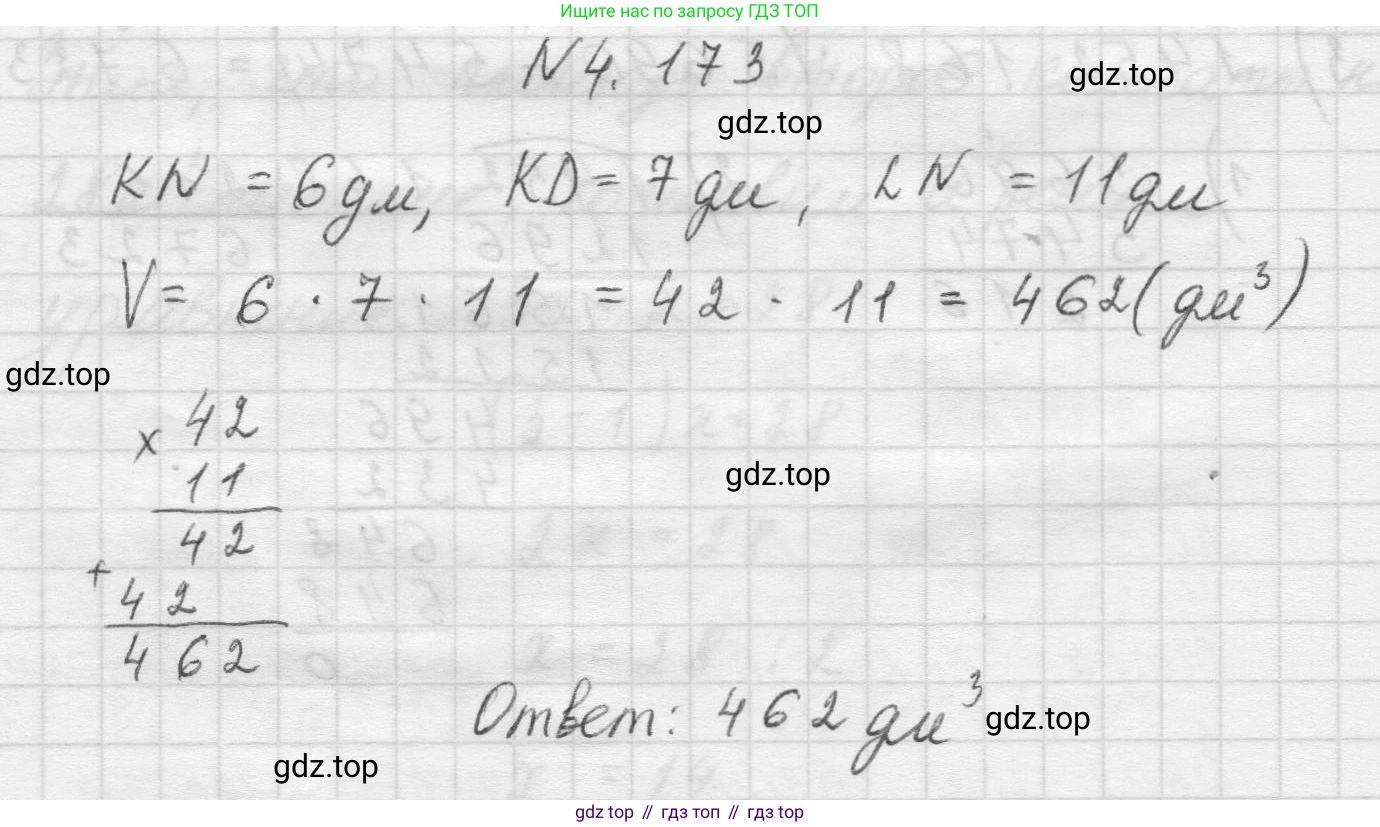 Ищите нас по запросу ГДЗ ТОП
N 4. 173
gdz.top
gdz.top
KN = 6 дм, KD = 7 дм, LN = 11 дм
V = 6 · 7 · 11 = 42 · 11 = 462 (дм³)
gdz.top
x 42
11
gdz.top
42
+
42
462
Ответ: 462 дм³
gdz.top
gdz.top
gdz top // гдз топ // гдз top